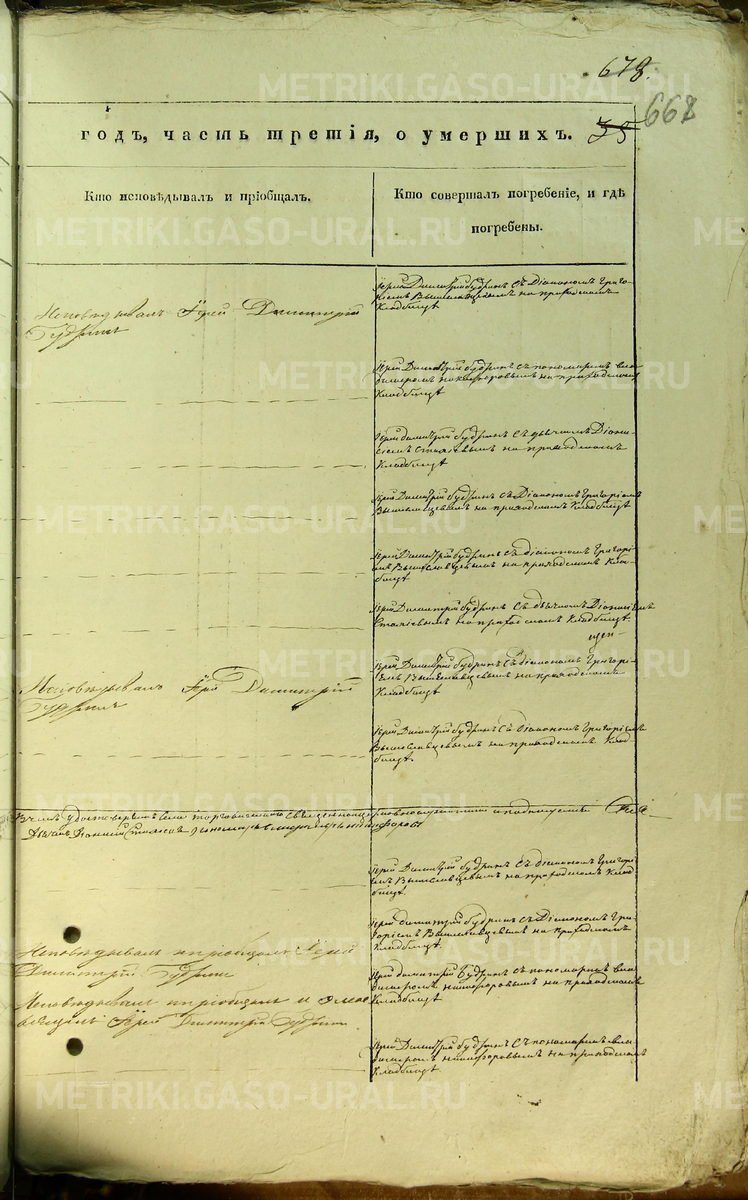 678.
668
35
годъ, часть третія, о умершихъ.
Кто исповѣдывалъ и пріобщалъ.
Кто совершалъ погребеніе, и гдѣ
погребены.
Исповѣдывалъ Іерей Димитрій
Будринъ
Іерей Димитрій Будринъ съ Діакономъ Григо-
ріемъ Вышеславцевымъ на приходскомъ
Кладбищѣ
Іерей Димитрій Будринъ съ пономаремъ Вла-
диміромъ Никифоровымъ на приходскомъ
Кладбищѣ
Іерей Димитрій Будринъ съ дьячкомъ Діони-
сіемъ на приходскомъ
Кладбищѣ
Іерей Димитрій Будринъ съ Діакономъ Григоріемъ
Вышеславцевымъ на приходскомъ Кладбищѣ
Іерей Димитрій Будринъ съ діакономъ Григорі-
емъ Вышеславцевымъ на приходскомъ Клад-
бищѣ
Іерей Димитрій Будринъ съ дьячкомъ Діонисіемъ
на приходскомъ Кладбищѣ
Исповѣдывалъ Іерей Димитрій
Будринъ
Іерей Димитрій Будринъ съ діакономъ Григорі-
емъ Вышеславцевымъ на приходскомъ
Кладбищѣ
Іерей Димитрій Будринъ съ діакономъ Григоріемъ
Вышеславцевымъ на приходскомъ Клад-
бищѣ.
Въ чемъ
пономарь
Іерей Димитрій Будринъ съ діакономъ Григорі-
емъ Вышеславцевымъ на приходскомъ Клад-
бищѣ
Исповѣдывалъ и пріобщалъ Іерей
Димитрій Будринъ
Іерей Димитрій Будринъ съ Діакономъ Гри-
горіемъ Вышеславцевымъ на приходскомъ
Кладбищѣ
Исповѣдывалъ и пріобщалъ и
Іерей Димитрій Будринъ
Іерей Димитрій Будринъ съ пономаремъ Вла-
диміромъ Никифоровымъ на приходскомъ
Кладбищѣ
Іерей Димитрій Будринъ съ пономаремъ Вла-
диміромъ Никифоровымъ на приходскомъ
Кладбищѣ
METRIKI.GASO-URAL.RU